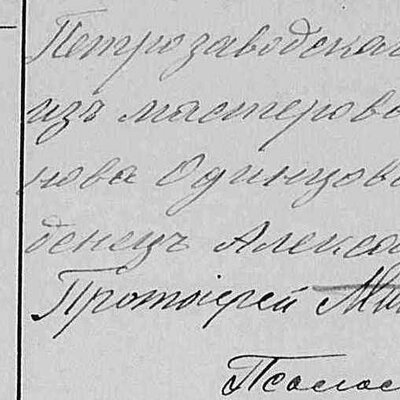 Петрозаводскаг
изъ мастерово
нова Одинцов
денецъ Алекса
Протоіерей Ми
Псалом